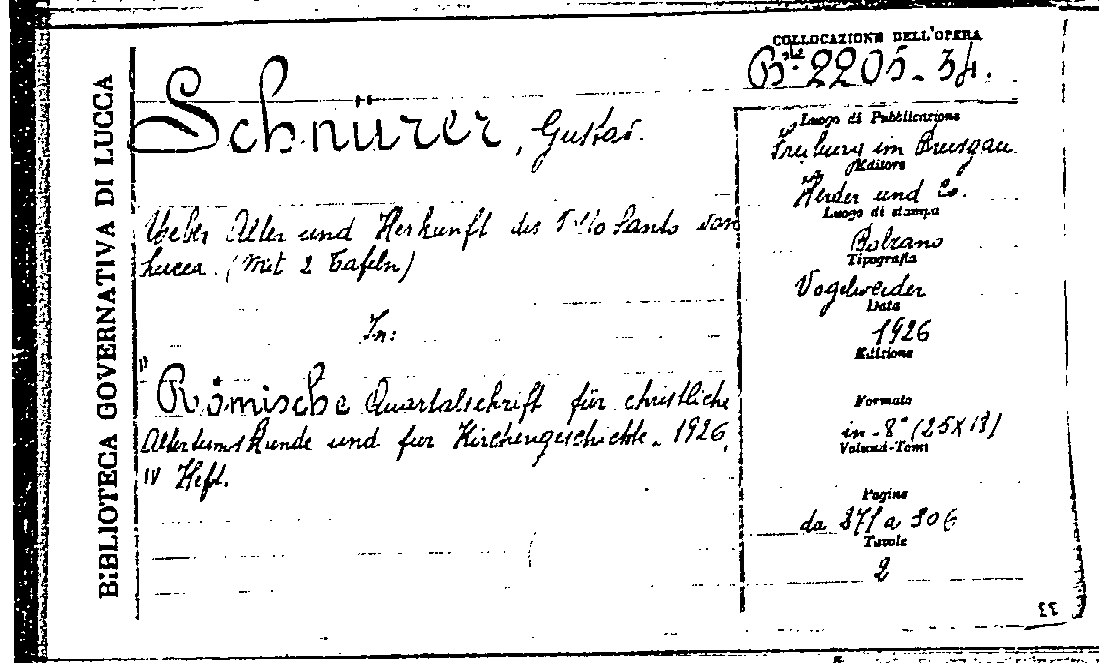 BIBLIOTECA GOVERNATIVA DI LUCCA
COLLOCAZIONE DELL'OPERA
B.ta 2205-34.
Schnürer, Gustav.
Ueber Alter und Herkunft des Volto Santo von
Lucca. (Mit 2 Tafeln)
In:
"Römische Quartalschrift für christliche
Altertumskunde und fur Kirchengeschichte. 1926,
IV Heft.
Luogo di Pubblicazione
Freiburg im Breisgau
Editore
Herder und Co.
Luogo di stampa
Bolzano
Tipografia
Vogelweider
Data
1926
Edizione
Formato
in-8° (25X18)
Volumi-Tomi
Pagine
da 271 a 306
Tavole
2